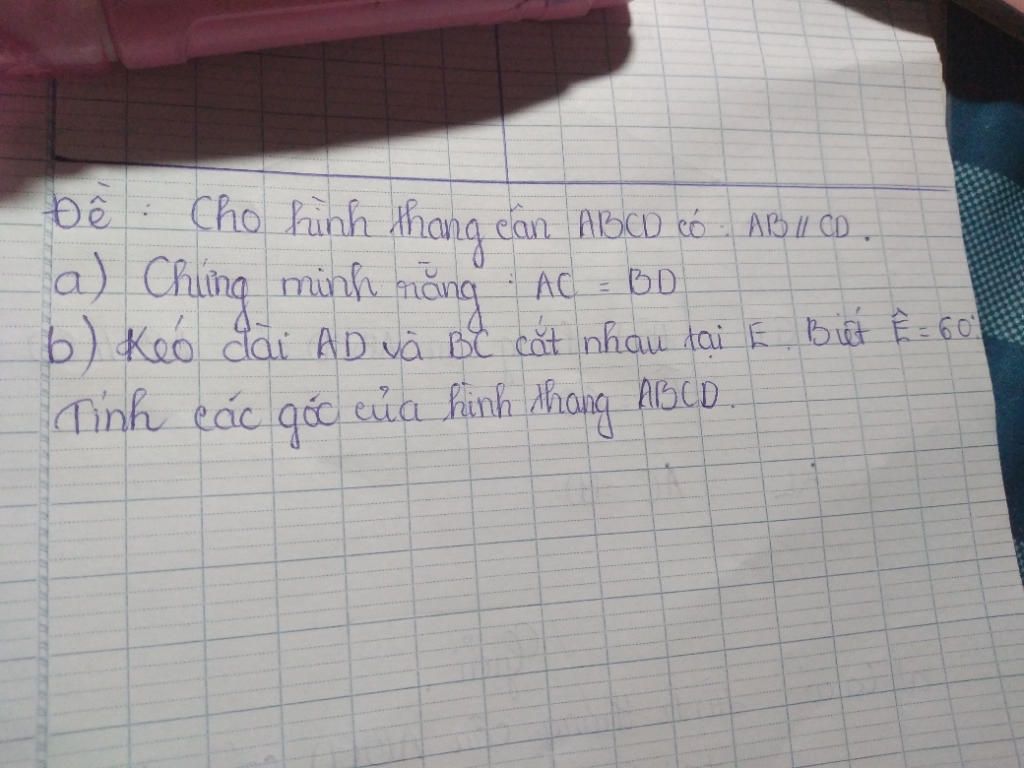 Đề : Cho hình thang cân ABCD có : AB // CD.
a) Chứng minh rằng : AC = BD
b) Kéo dài AD và BC cắt nhau tại E. Biết Ê = 60°
Tính các góc của hình thang ABCD.